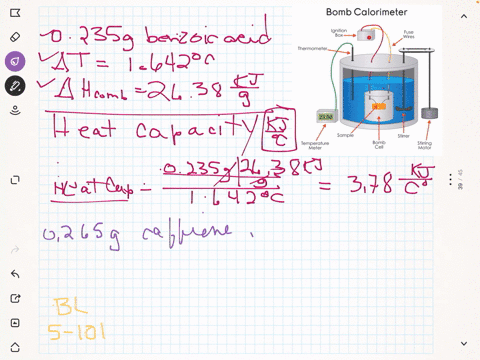 0.235g benzoic acid
ΔT = 1.642°C
ΔHcomb = 26.38 KJ/g
Heat Capacity KJ/°C
Heat Cap = 0.235g | 26.38 KJ / g / 1.642°C = 3.78 KJ/C°
0.265g caffiene.
BL
5-101
Bomb Calorimeter
Ignition Box
Fuse Wires
Thermometer
Temperature Meter
Sample
Bomb Cell
Stirrer
Stirring Motor
39 / 45